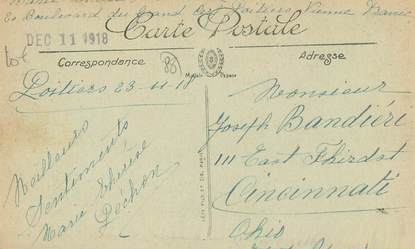 20 Boulevard du Grand Cerf Poitiers Vienne France
DEC 11 1918
Carte Postale
Correspondance
Adresse
Poitiers 23-11-18
Meilleurs
Sentiments
Marie Thérèse
Péchon
Monsieur
Joseph Bandiéri
111 East Third st
Cincinnati
Ohio